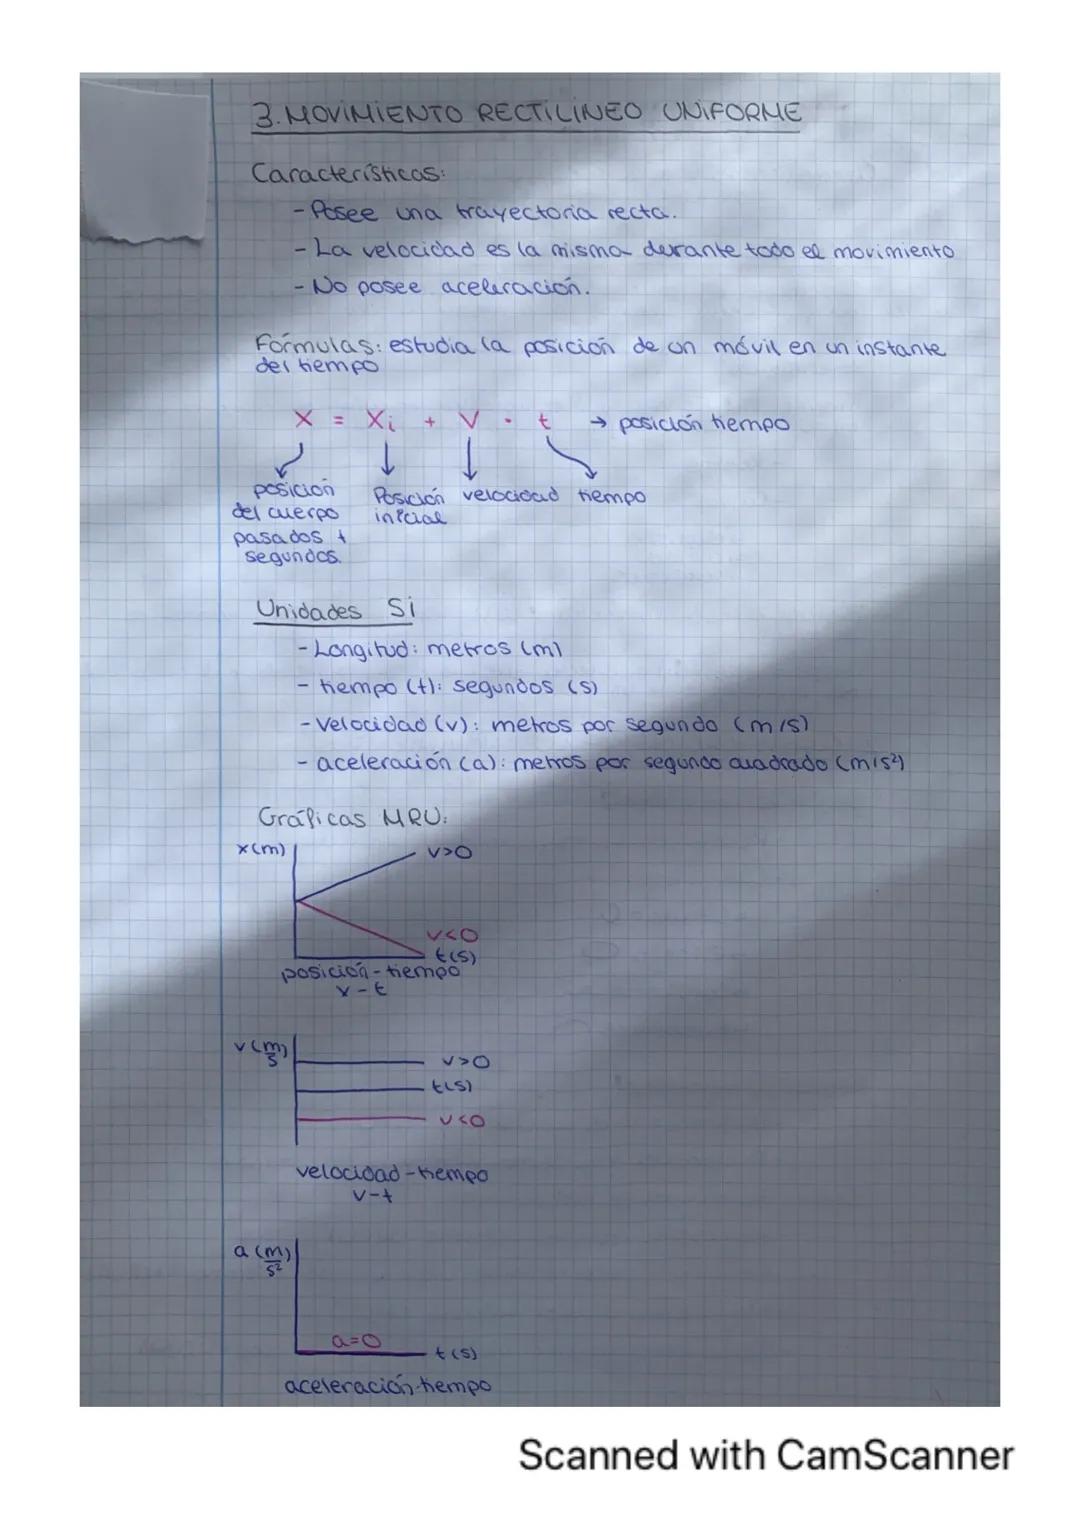 3. MOVIMIENTO RECTILÍNEO UNIFORME
Características:
- Posee una trayectoria recta.
- La velocidad es la misma durante todo el movimiento
- No posee aceleración.
Fórmulas: estudia la posición de un móvil en un instante
del tiempo
X = Xi + V · t → posición tiempo
posición Posición velocidad tiempo
del cuerpo inicial
pasados t
segundos.
Unidades Si
- Longitud: metros (m)
- tiempo (t): segundos (s)
- Velocidad (v): metros por segundo (m/s)
- aceleración (a): metros por segundo cuadrado (m/s²)
Gráficas MRU:
x(m)
v>0
v<0
t(s)
posición-tiempo
x-t
v(m/s)
v>0
t(s)
v<0
velocidad-tiempo
v-t
a(m/s²)
a=0
t(s)
aceleración-tiempo
Scanned with CamScanner